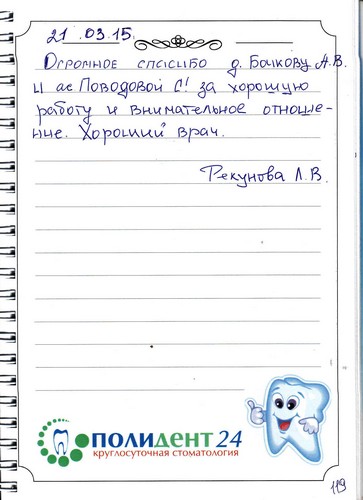 21.03.15.
Огромное спасибо д. Бачкову А.В.
и ас Поводовой С! за хорошую
работу и внимательное отноше-
ние. Хороший врач.
Рекунова Л.В.
ПОЛИДЕНТ 24
круглосуточная стоматология
119